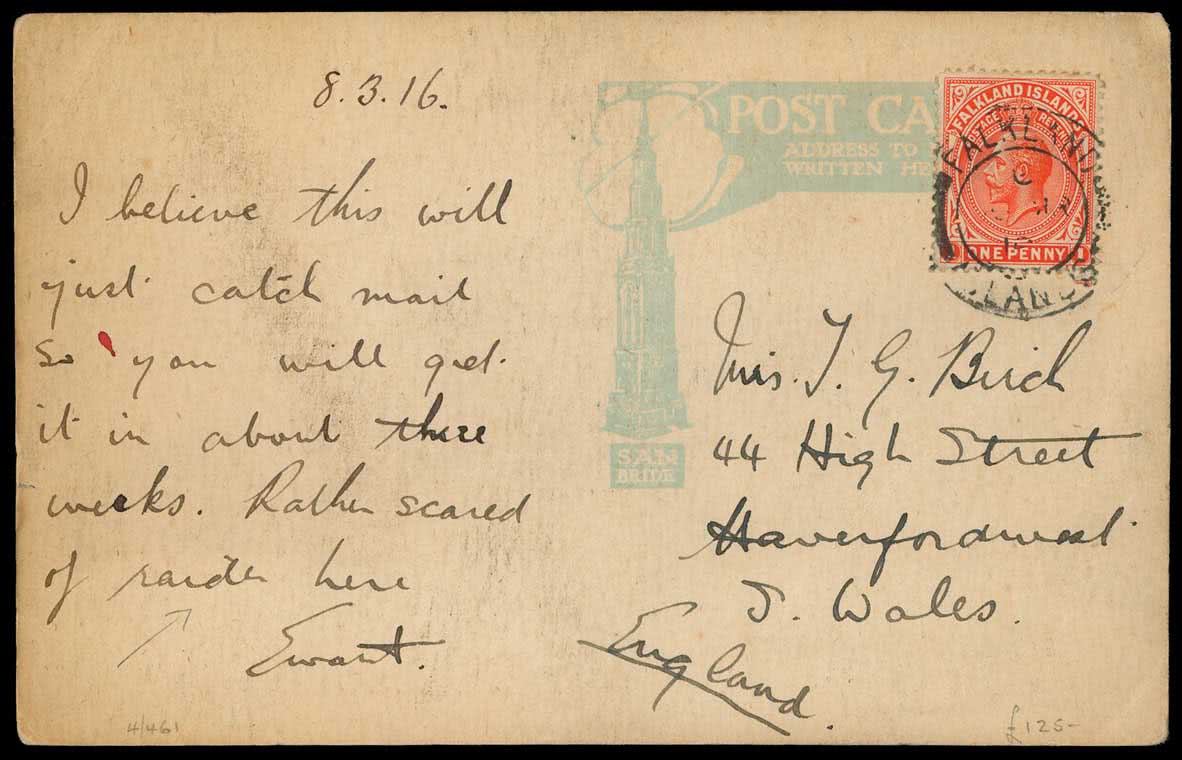 8.3.16.
I believe this will
just catch mail
so you will get
it in about three
weeks. Rather scared
of raider here
Ewart.
4/461
POST CA
ADDRESS TO
WRITTEN HE
SAN
BRIDE
FALKLAND ISLANDS
POSTAGE REVENUE
ONE PENNY
FALKLAND
ISLANDS
Mrs. J. G. Birch
44 High Street
Haverfordwest
S. Wales.
England.
£125-